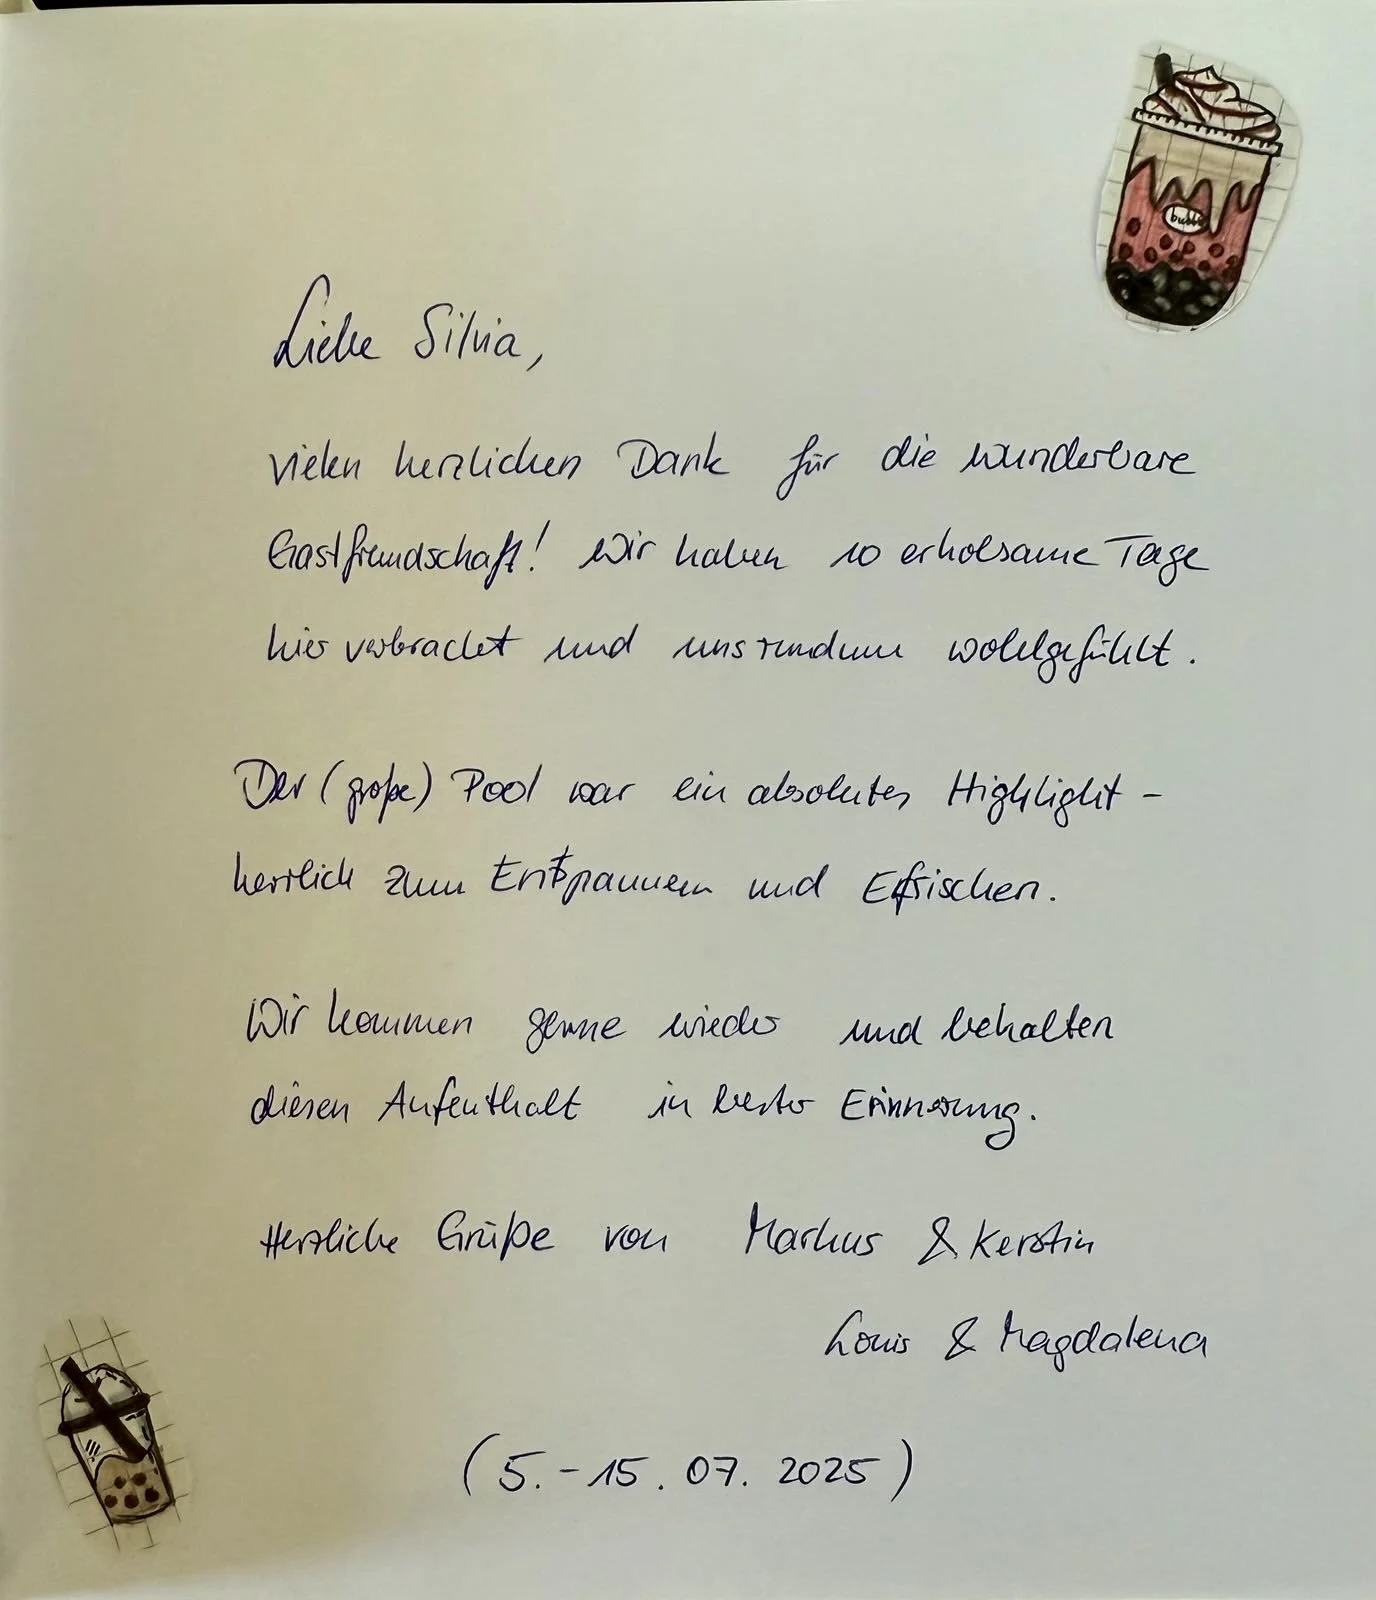 bubble
Liebe Silvia,
vielen herzlichen Dank für die wunderbare
Gastfreundschaft! Wir haben 10 erholsame Tage
hier verbracht und uns rundum wohlgefühlt.
Der (große) Pool war ein absolutes Highlight –
herrlich zum Entspannen und Erfrischen.
Wir kommen gerne wieder und behalten
diesen Aufenthalt in bester Erinnerung.
Herzliche Grüße von Markus & Kerstin
Louis & Magdalena
(5. - 15. 07. 2025)